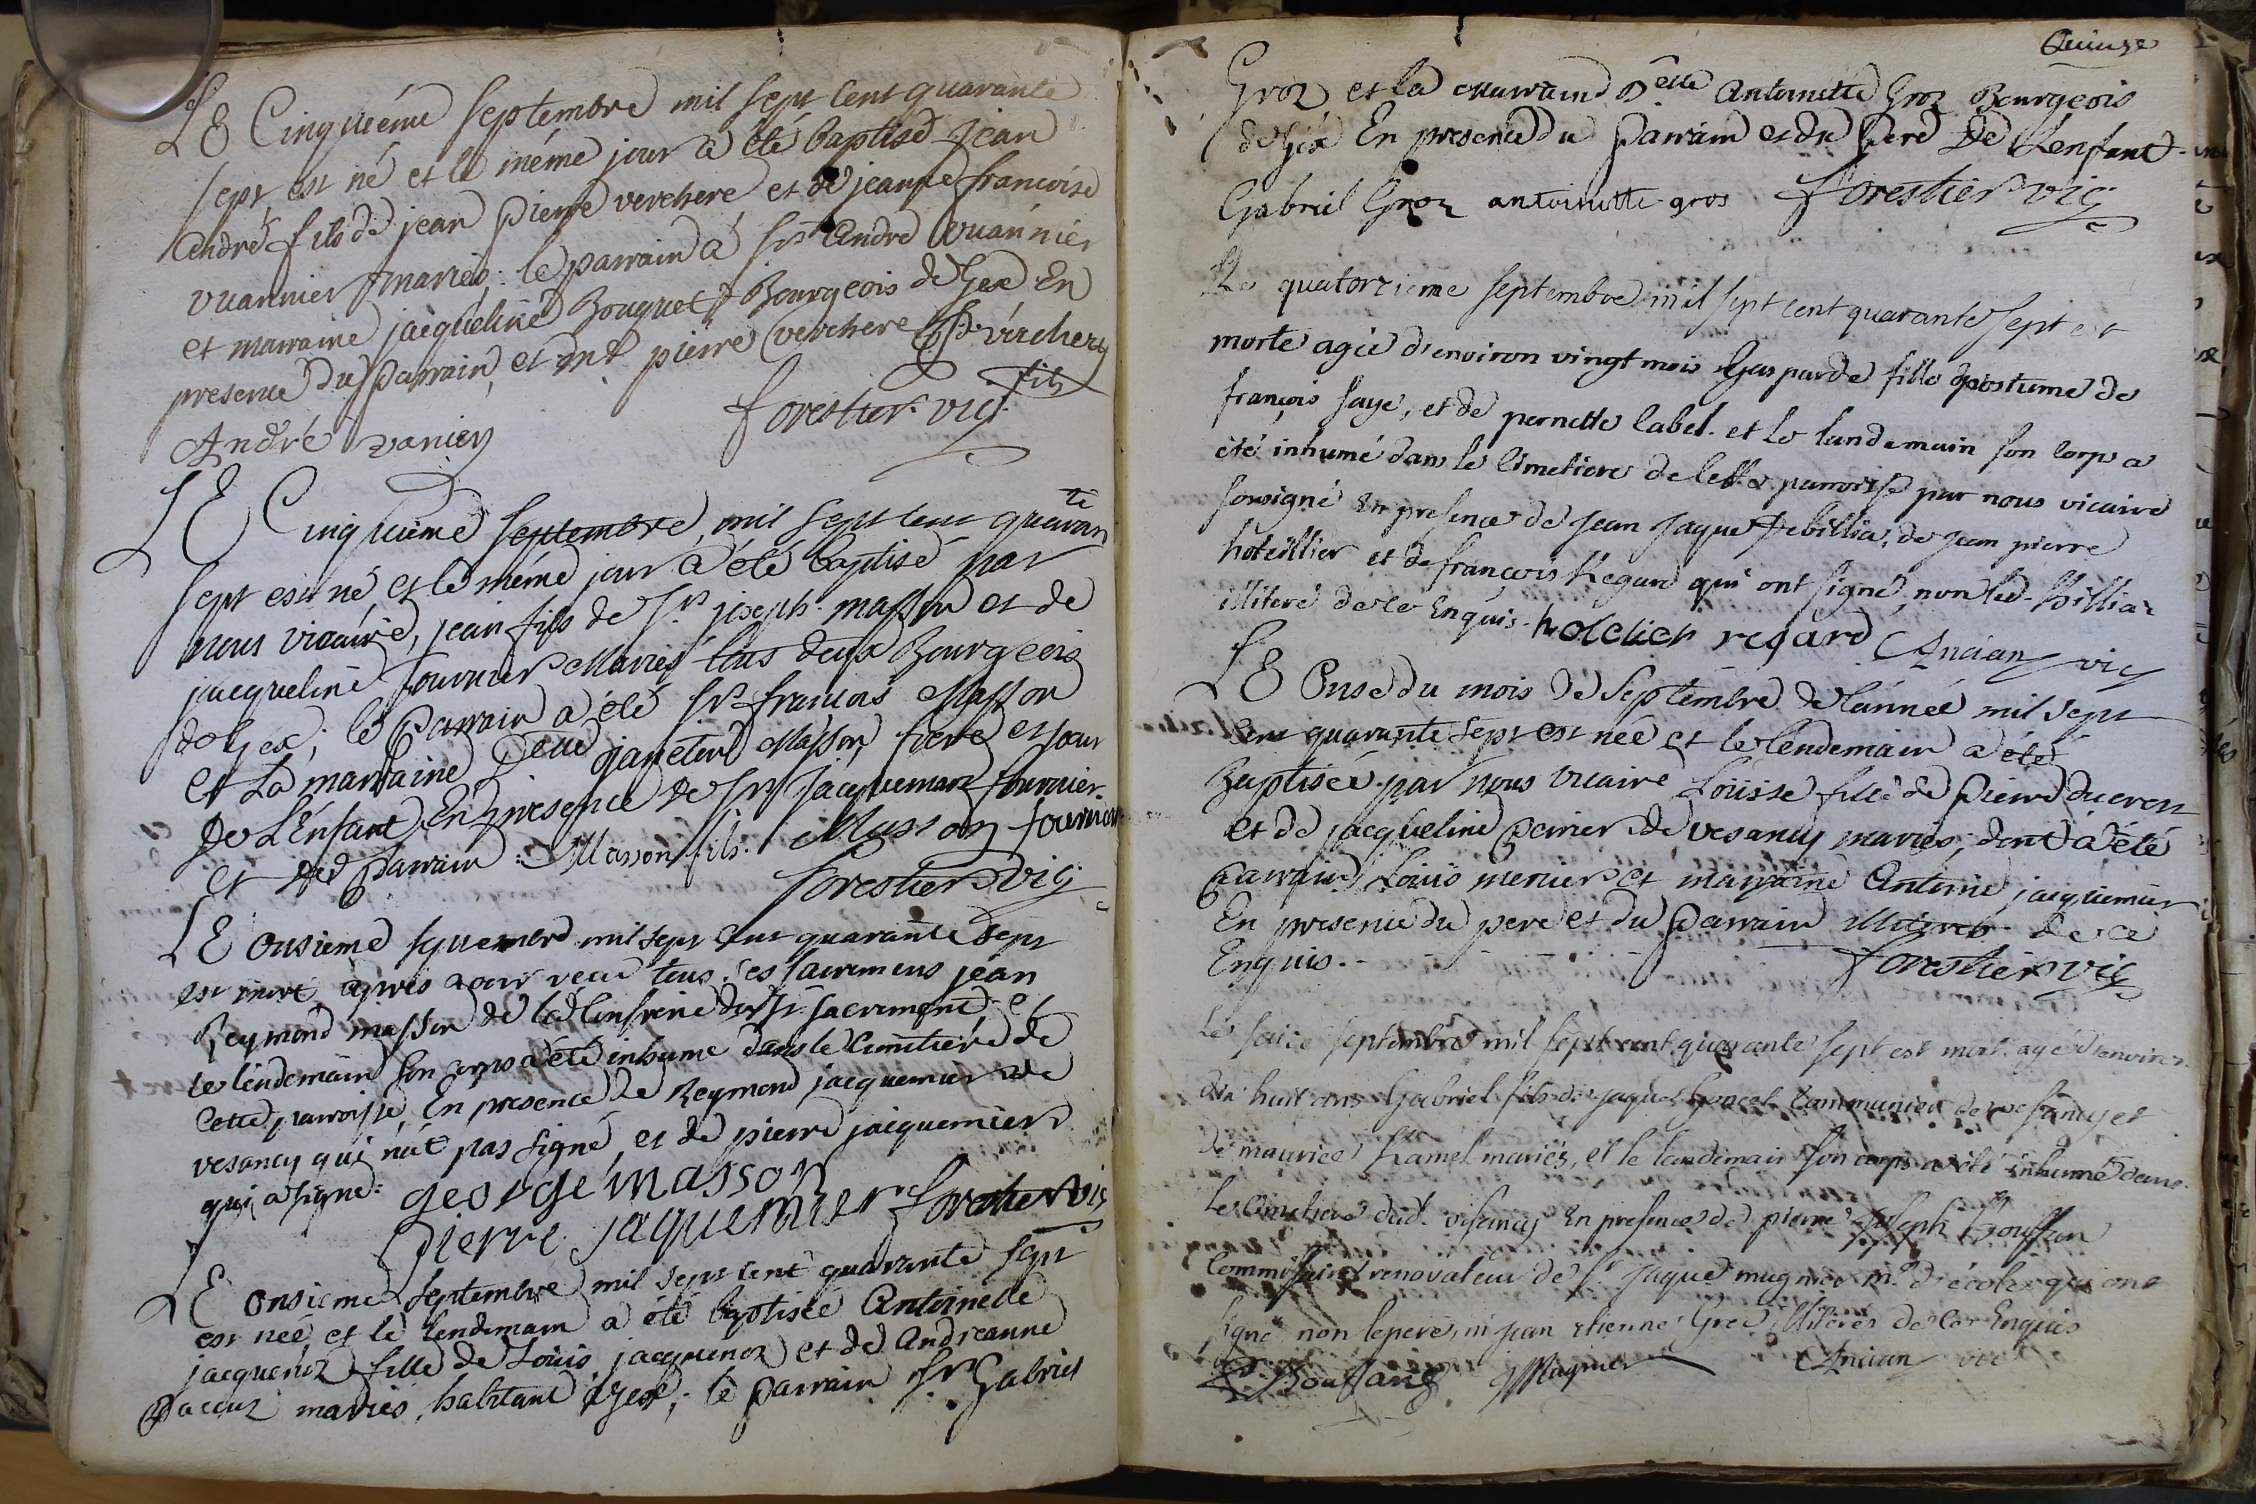 LE Cinquiéme Septembre mil sept cent quarante
sept est né et le méme jour a été baptisé Jean
André fils de jean pierre verchere et de jeanne francoise
vuannier mariés; le parrain a sr André vuánniér
et marraine jacqueline Bouquet Bourgeois de Gex En
presence du parrain, et de pierre verchere verchere
fils
André vanier forestier vic
LE Cinquiéme Septembre, mil sept cent quaran te
sept est né et le méme jour a été baptisé par
nous vicaire, jean fils de Sr joseph masson et de
jacqueline fournier Mariés tous deux Bourgeois
de Gex; le Parrain a été Sr francois Masson
et La marraine Delle janeton Masson, frere et soeur
de L'Enfant, En presence de Sr Jacquemard fournier
et dud parrain: Masson fils. Masson fournier
forestier vic
LE onsieme septembre mil sept cent quarante sept
est mort aprés avoir reçu tous ses sacremens jean
Reymond masson de la Confrerie du St sacrement; et
le lendemain son corps a été inhumé dans le Cimétiére de
cette parroisse En presence de Reymond jacquemier de
vesancy qui n'at pas signé et de pierre jaiquemier
qui a signé: george masson
pierre jaquemier forestier vic
LE onsieme Septembre mil sept cent quarante sept
est neé et le lendemain a été baptisée Antoinette
jacquenoz fille de Loüis jacquenoz et de Andreanne
Paccuz mariés, habitant a gex; le parrain Sr Gabriel
Quinze
Groz et la marraine Delle Antoinette Groz Bourgeois
de Gex En presence du parrain et du pere de l'enfant
Gabriel Groz antoinette gros forestier vic
Le quatorzieme septembre mil sept cent quarante sept est
morte agée d'environ vingt mois Gasparde fille postume de
françois saye, et de pernette label. et le landemain son corps a
été inhumé dans le Cimetiere de cette parroisse par nous vicaire
sousigné en presence de jean jaque Debilliaz, de jean pierre
hoteillier et de françois Regard qui ont signé, non led. Billiaz
illiteré de ce Enquis. hotelier regard Ancian vic
LE Onse du mois de Septembre de l'année mil sept
cent quarante sept est neé et le lendemain a été
baptisée par nous vicaire Loüise fille de Pierre ducret
et de jacqueline Perrier de vesancy mariés, dont a été
parrain Loüis mercier et marraine Antoine jaiquemier
En presence du pere et du parrain illiterés de ce
Enquis. forestier vic
Le saice septembre mil sept cent quarante sept est mort agé d'environ
dix huit ans Gabriel fils de jaque Poncet Communier de vesancy et
de maurice hamel mariés, et le landemain son corps a été inhumé dans
le Cimetiere dud. vesancy en presence de pierre joseph Bouffan
Commissaire renovateur de Sr jaque mugnier me d'école qui ont
signé non le pere, ni jean etienne Gre illiterés de ce Enquis
Bouffang Magnier Ancian vic